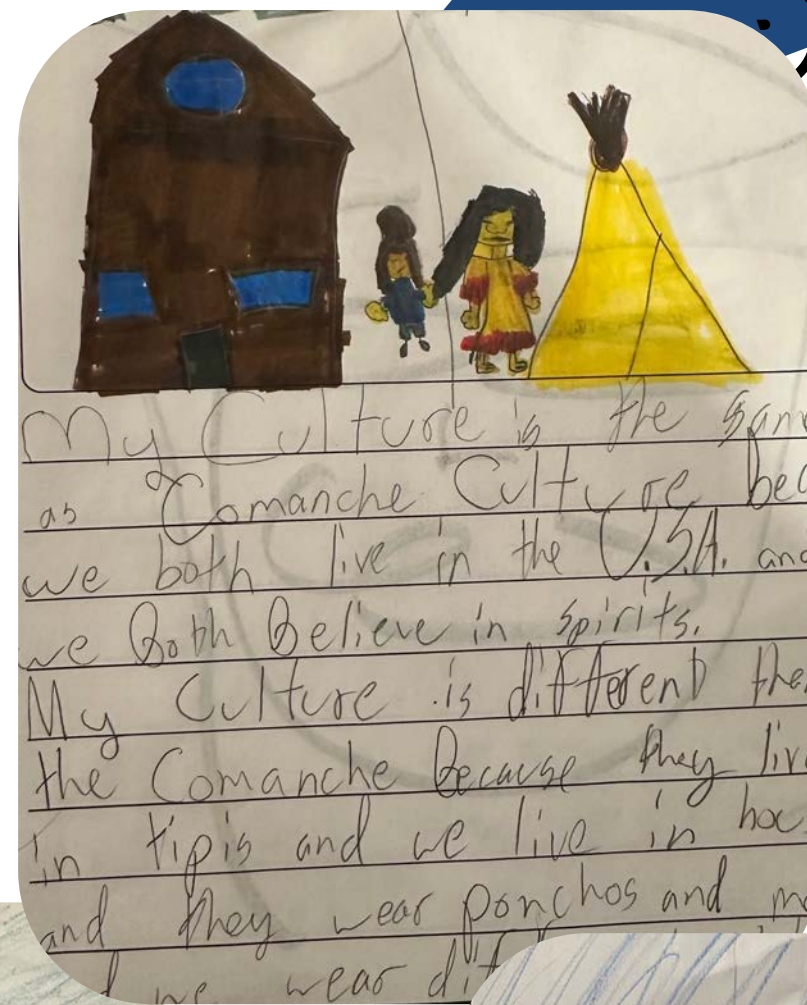 My Culture is the sam
as Comanche Culture bec
we both live in the U.S.A. and
we Both Believe in spirits.
My Culture is different the
the Comanche Because they liv
in tipis and we live in hou
and they wear ponchos and mo
we wear dif